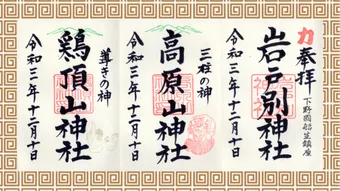 力 奉拝
下野國船生鎮座
岩戸別神社
令和三年十二月十日
三柱の神
高原山神社
令和三年十二月十日
尊きの神
鶏頂山神社
令和三年十二月十日